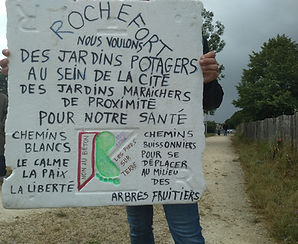 ROCHEFORT
NOUS VOULONS
DES JARDINS POTAGERS
AU SEIN DE LA CITÉ
DES JARDINS MARAICHERS
DE PROXIMITÉ
POUR NOTRE SANTÉ
CHEMINS
BLANCS
LE CALME
LA PAIX
LA LIBERTÉ
NON AU BÉTON
LES PIEDS SUR TERRE
CHEMINS
BUISSONNIERS
POUR SE
DÉPLACER
AU MILIEU
DES
ARBRES FRUITIERS